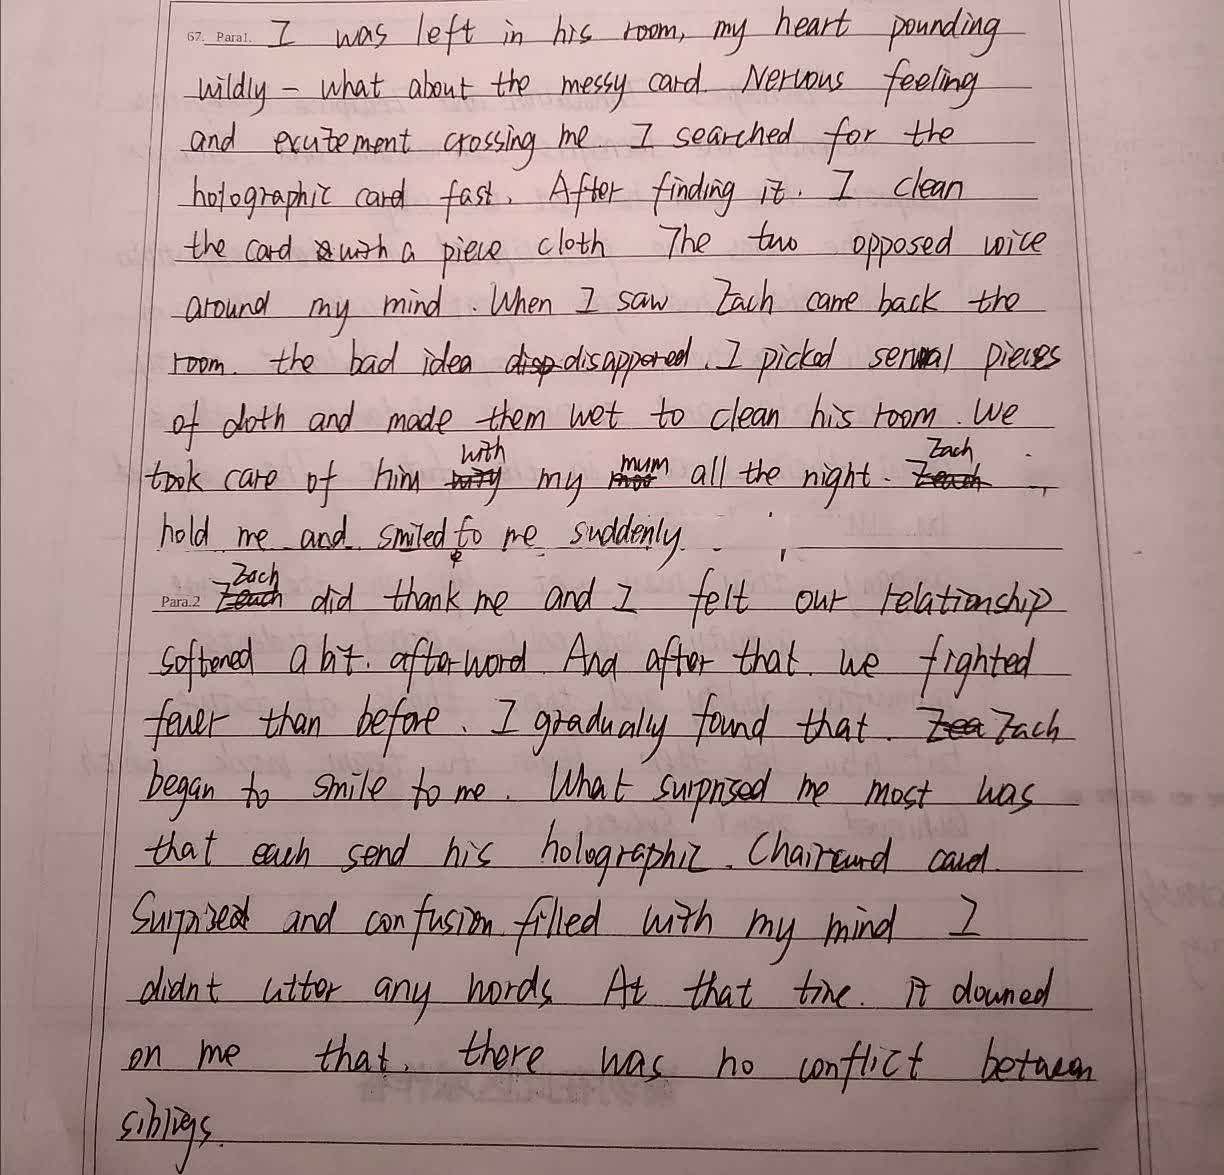 67. Para1. I was left in his room, my heart pounding
wildly – what about the messy card. Nervous feeling
and excitement crossing me. I searched for the
holographic card fast. After finding it. I clean
the card with a piece cloth The two opposed voice
around my mind. When I saw Zach came back the
room. the bad idea disappered. I picked serval pieces
of cloth and made them wet to clean his room. We
took care of him with my mum all the night. Zach
hold me and smiled to me suddenly.
Para.2 Zach did thank me and I felt our relationship
softened a bit. afterword And after that. we fighted
fewer than before. I gradually found that. Zach
began to smile to me. What surprised me most was
that each send his holographic. card.
Surprised and confusion filled with my mind I
didnt utter any words At that time. it downed
on me that. there was no conflict between
siblings.